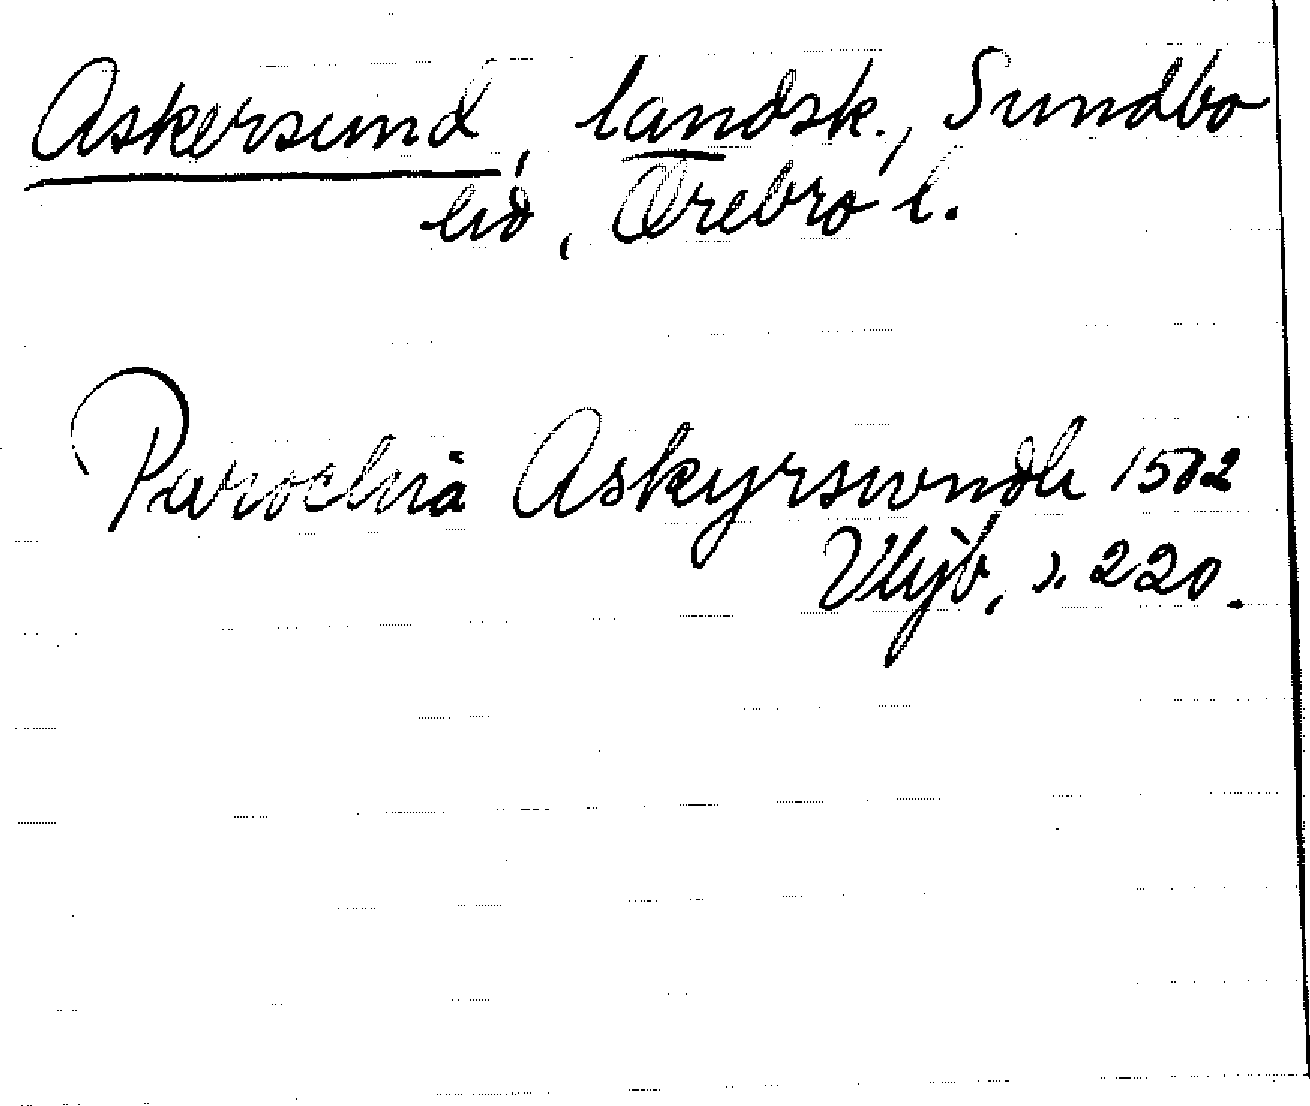 Askersund, landsk., Sundbo
hd, Örebro l.
Parochia Askyrswndh 1502
Vkjb, s. 220.